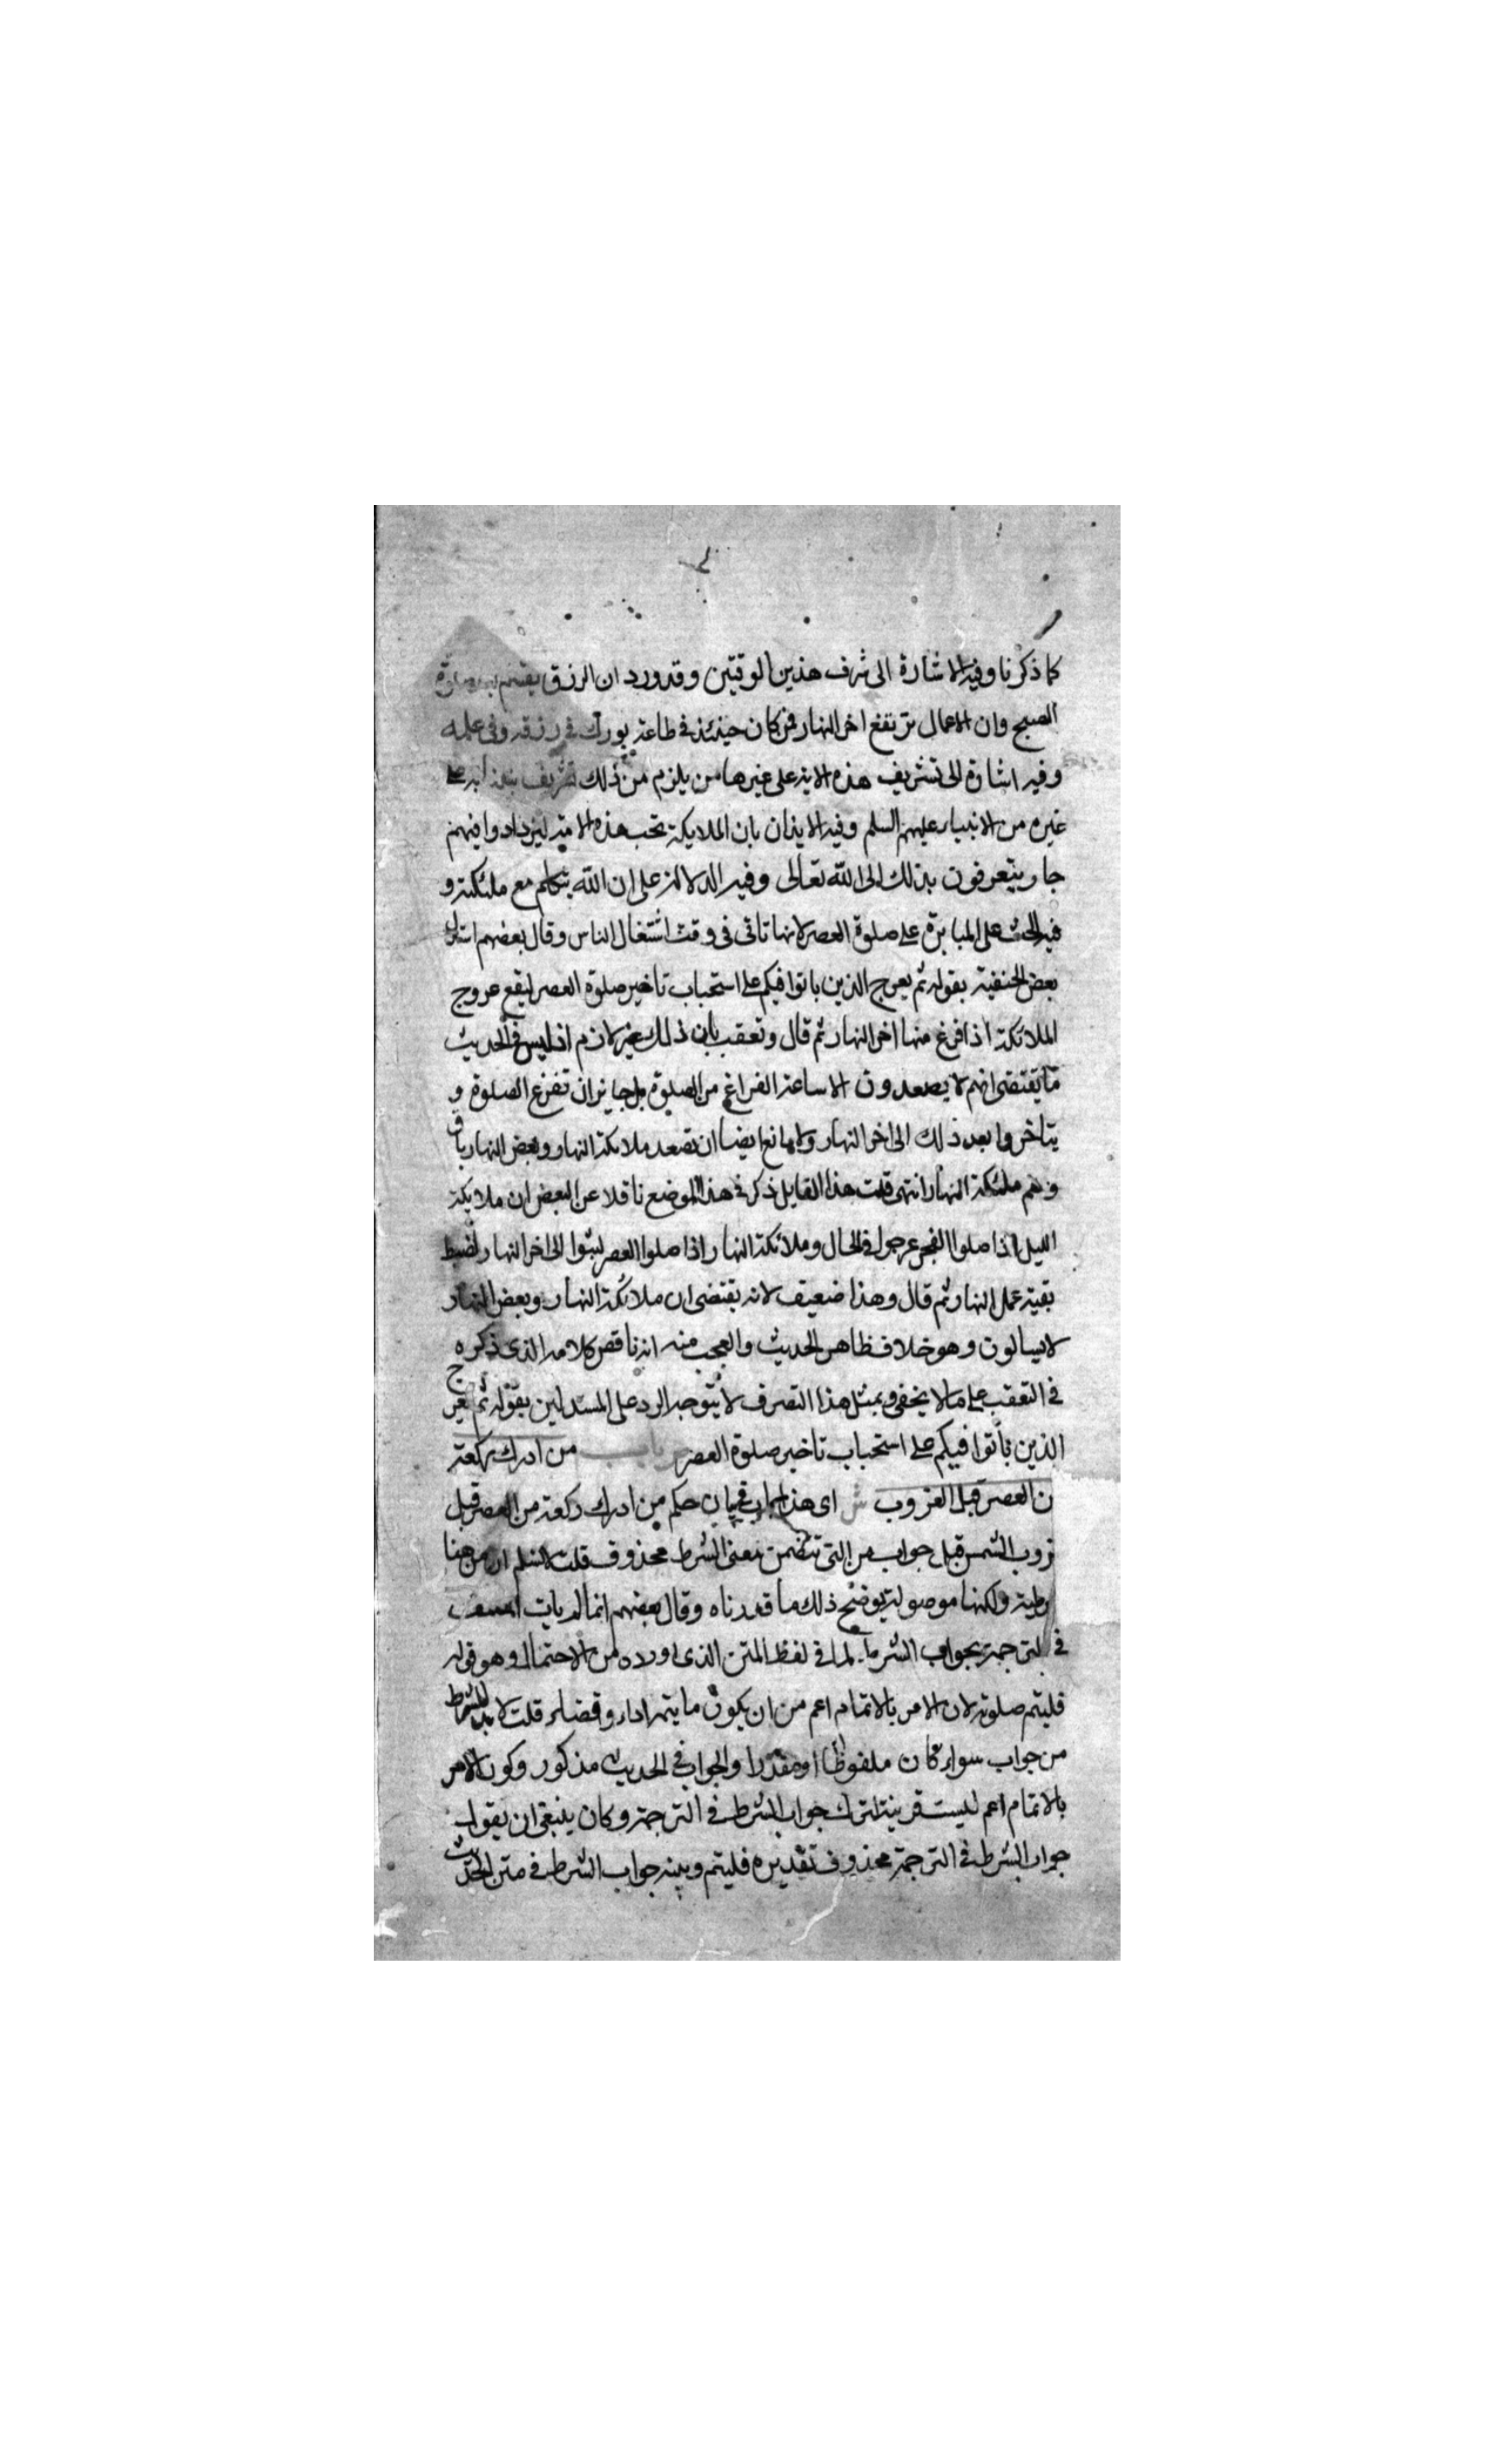 كما ذكرنا وفيه الاشارة الى شرف هذين الوقتين وقد ورد ان الرزق يقسم بعد صلوة
الصبح وان الاعمال ترتفع اخر النهار فمن كان حينئذ في طاعة بورك في رزقه وفي عمله
وفيه اشارة الى تشريف هذه الامة على غيرها من يلزم من ذلك تشريف نبينا به على
غيره من الانبياء عليهم السلم وفيه الايذان بان الملايكة تحب هذه الامة ليزدادوا فيهم
حبا ويتعرفون بذلك الى الله تعالى وفيه الدلالة على ان الله يتكلم مع ملئكته و
فيه الحث على المبابرة على صلوة العصر لانها تاتى فى وقت اشتغال الناس وقال بعضهم استدل
بعض الحنفية بقوله ثم يعرج الذين باتوا فيكم على استحباب تاخير صلوة العصر ليقع عروج
الملائكة اذا فرغ منها اخر النهار ثم قال وتعقب بان ذلك غير لازم اذ ليس في الحديث
ما يقتضى انهم لا يصعدون الا ساعة الفراغ من الصلوة بل جايز ان تفرغ الصلوة و
يتاخروا بعد ذلك الى اخر النهار ولا مانع ايضا ان تصعد ملائكة النهار وبعض النهار باق
وهم ملئكة النهار انتهى قلت هذا القايل ذكر في هذا الموضع ناقلا عن البعض ان ملايكة
الليل اذا صلوا الفجر عرجوا في الحال وملائكة النهار اذا صلوا العصر لبثوا الى اخر النهار لضبط
بقية عمل النهار ثم قال وهذا ضعيف لانه يقتضى ان ملائكة النهار وبعض النهار
لا يسالون وهو خلاف ظاهر الحديث والعجب منه انه ناقض كلامه الذى ذكره
في التعقب على ما لا يخفى وبمثل هذا التصرف لا يتوجه الرد على المستدلين بقوله ثم يعرج
الذين باتوا فيكم على استحباب تاخير صلوة العصر باب من ادرك ركعة
ن العصر قبل الغروب ش اى هذا باب في بيان حكم من ادرك ركعة من العصر قبل
غروب الشمس قيل جواب من التى تتضمن معنى الشرط محذوف قلت لانسلم ان من هنا
رطية ولكنها موصولة يوضح ذلك ما قدرناه وقال بعضهم انما لم يات المصنف
في الترجمة بجواب الشرط لما في لفظ المتن الذى اورده من الاحتمال وهو قوله
فليتم صلوته لان الامر بالاتمام اعم من ان يكون ما يتمه اداء وقضاء قلت لا بد للشرط
من جواب سواء كان ملفوظا او مقدرا والجواب في الحديث مذكور وكون الامر
بالاتمام اعم ليست قرينة لترك جواب الشرط في الترجمة وكان ينبغى ان يقول
جواب الشرط في الترجمة محذوف تقديره فليتم وبينه جواب الشرط في متن الحديث